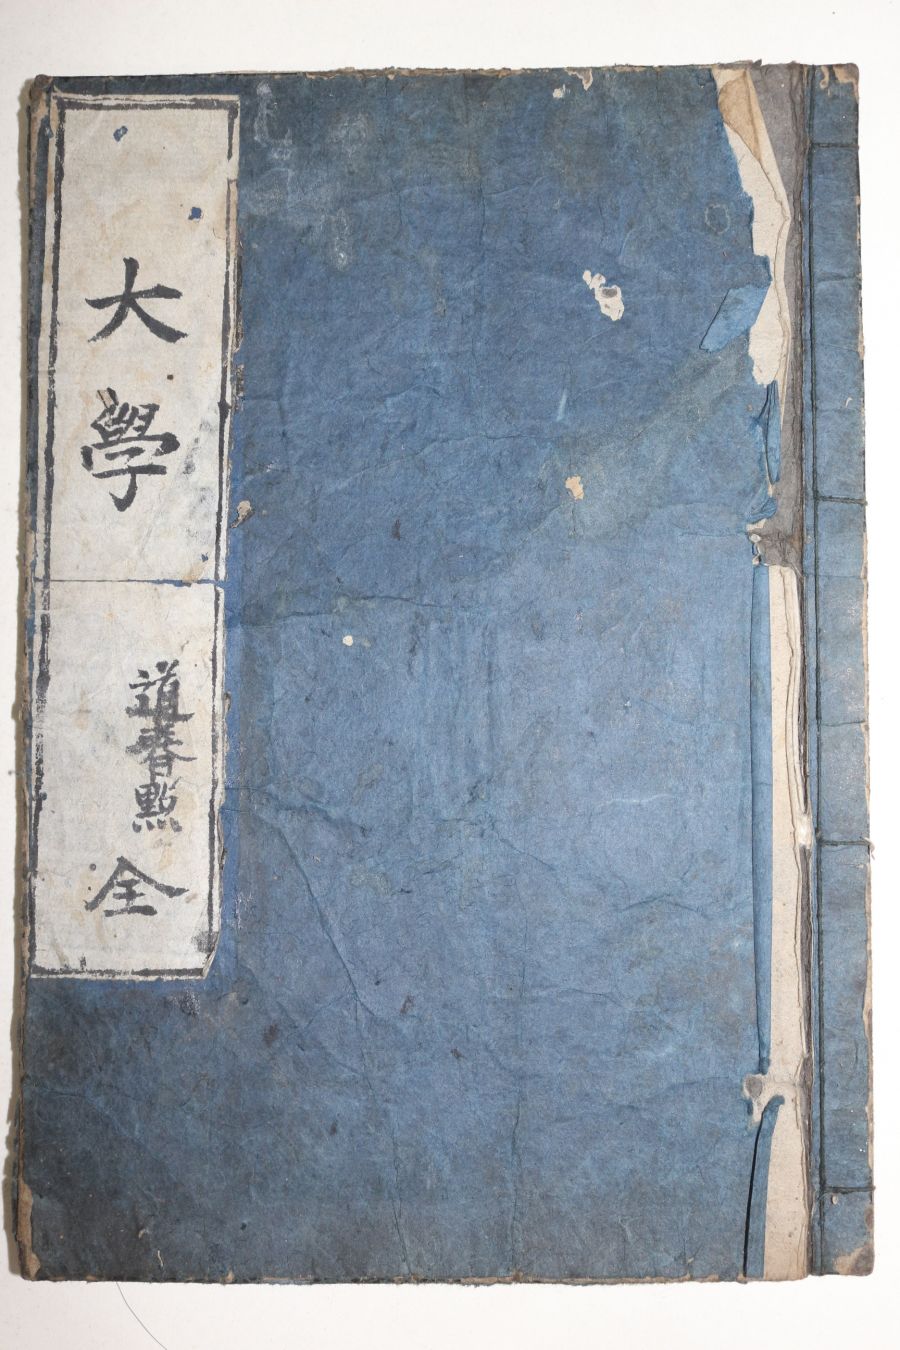 大學
道春點
全